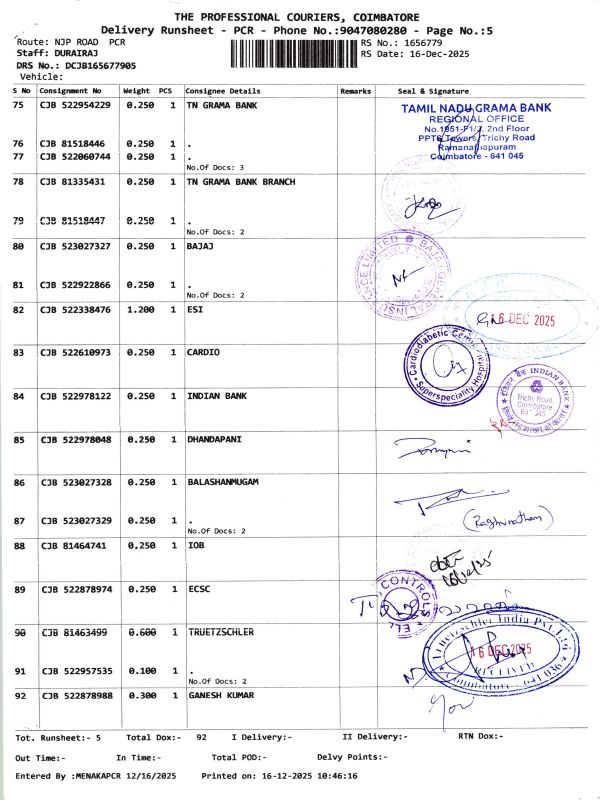 THE PROFESSIONAL COURIERS, COIMBATORE
Delivery Runsheet - PCR - Phone No.:9047080280 - Page No.:5
Route: NJP ROAD PCR RS No.: 1656779
Staff: DURAIRAJ RS Date: 16-Dec-2025
DRS No.: DCJB165677905
Vehicle:
S No Consignment No Weight PCS Consignee Details Remarks Seal & Signature
75 CJB 522954229 0.250 1 TN GRAMA BANK
TAMIL NADU GRAMA BANK
REGIONAL OFFICE
2nd Floor
PPTS Towers, Trichy Road
Ramanathapuram
Coimbatore - 641 045
76 CJB 81518446 0.250 1 .
77 CJB 522060744 0.250 1 .
No.Of Docs: 3
78 CJB 81335431 0.250 1 TN GRAMA BANK BRANCH
79 CJB 81518447 0.250 1 .
No.Of Docs: 2
80 CJB 523027327 0.250 1 BAJAJ
81 CJB 522922866 0.250 1 .
No.Of Docs: 2
82 CJB 522338476 1.200 1 ESI
16 DEC 2025
83 CJB 522610973 0.250 1 CARDIO
Cardiodiabetic Superspeciality Hospital
84 CJB 522978122 0.250 1 INDIAN BANK
INDIAN BANK
Trichy Road,
Coimbatore
641 045
85 CJB 522978048 0.250 1 DHANDAPANI
86 CJB 523027328 0.250 1 BALASHANMUGAM
87 CJB 523027329 0.250 1 .
No.Of Docs: 2
(Raghunatham)
88 CJB 81464741 0.250 1 IOB
89 CJB 522878974 0.250 1 ECSC
CONTROLS
90 CJB 81463499 0.600 1 TRUETZSCHLER
Truetzschler India Pvt. Ltd
16 DEC 2025
RECEIVED
Coimbatore - 641 036
91 CJB 522957535 0.100 1 .
No.Of Docs: 2
92 CJB 522878988 0.300 1 GANESH KUMAR
Tot. Runsheet:- 5 Total Dox:- 92 I Delivery:- II Delivery:- RTN Dox:-
Out Time:- In Time:- Total POD:- Delvy Points:-
Entered By :MENAKAPCR 12/16/2025 Printed on: 16-12-2025 10:46:16